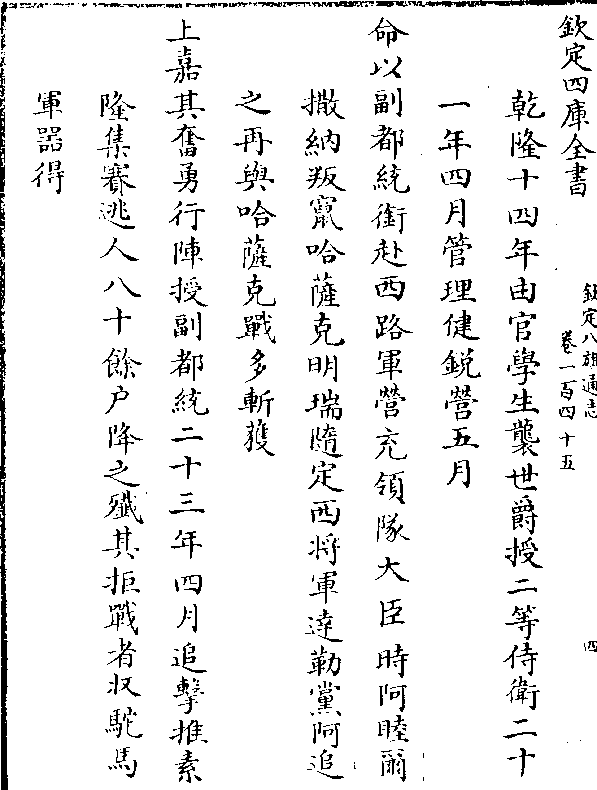 欽定四庫全書
欽定八旗通志
卷一百四十五
四
乾隆十四年由官學生襲世爵授二等侍衛二十
一年四月管理健銳營五月
命以副都統銜赴西路軍營充領隊大臣時阿睦爾
撒納叛竄哈薩克明瑞隨定西將軍達勒黨阿追
之再與哈薩克戰多斬獲
上嘉其奮勇行陣授副都統二十三年四月追擊推素
隆集賽逃人八十餘户降之殲其拒戰者収駝馬
軍器得